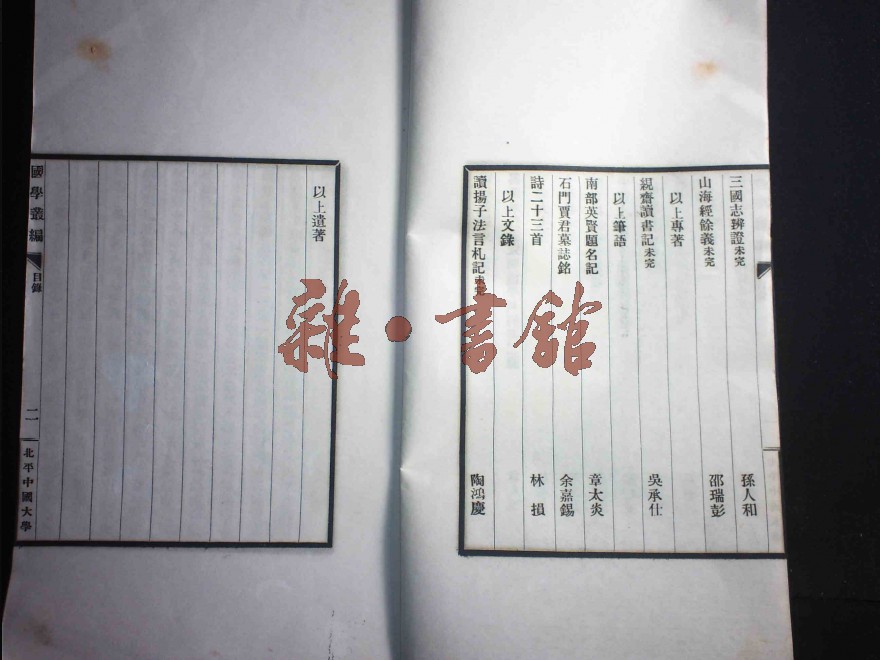 三國志辨證未完 孫人和
山海經餘義未完 邵瑞彭
以上專著
絸齋讀書記未完 吳承仕
以上筆語
南部英賢題名記 章太炎
石門賈君墓誌銘 余嘉錫
詩二十三首 林損
以上文錄
讀揚子法言札記未完 陶鴻慶
以上遺著
國學叢編 目錄 二 北平中國大學
雜·書館